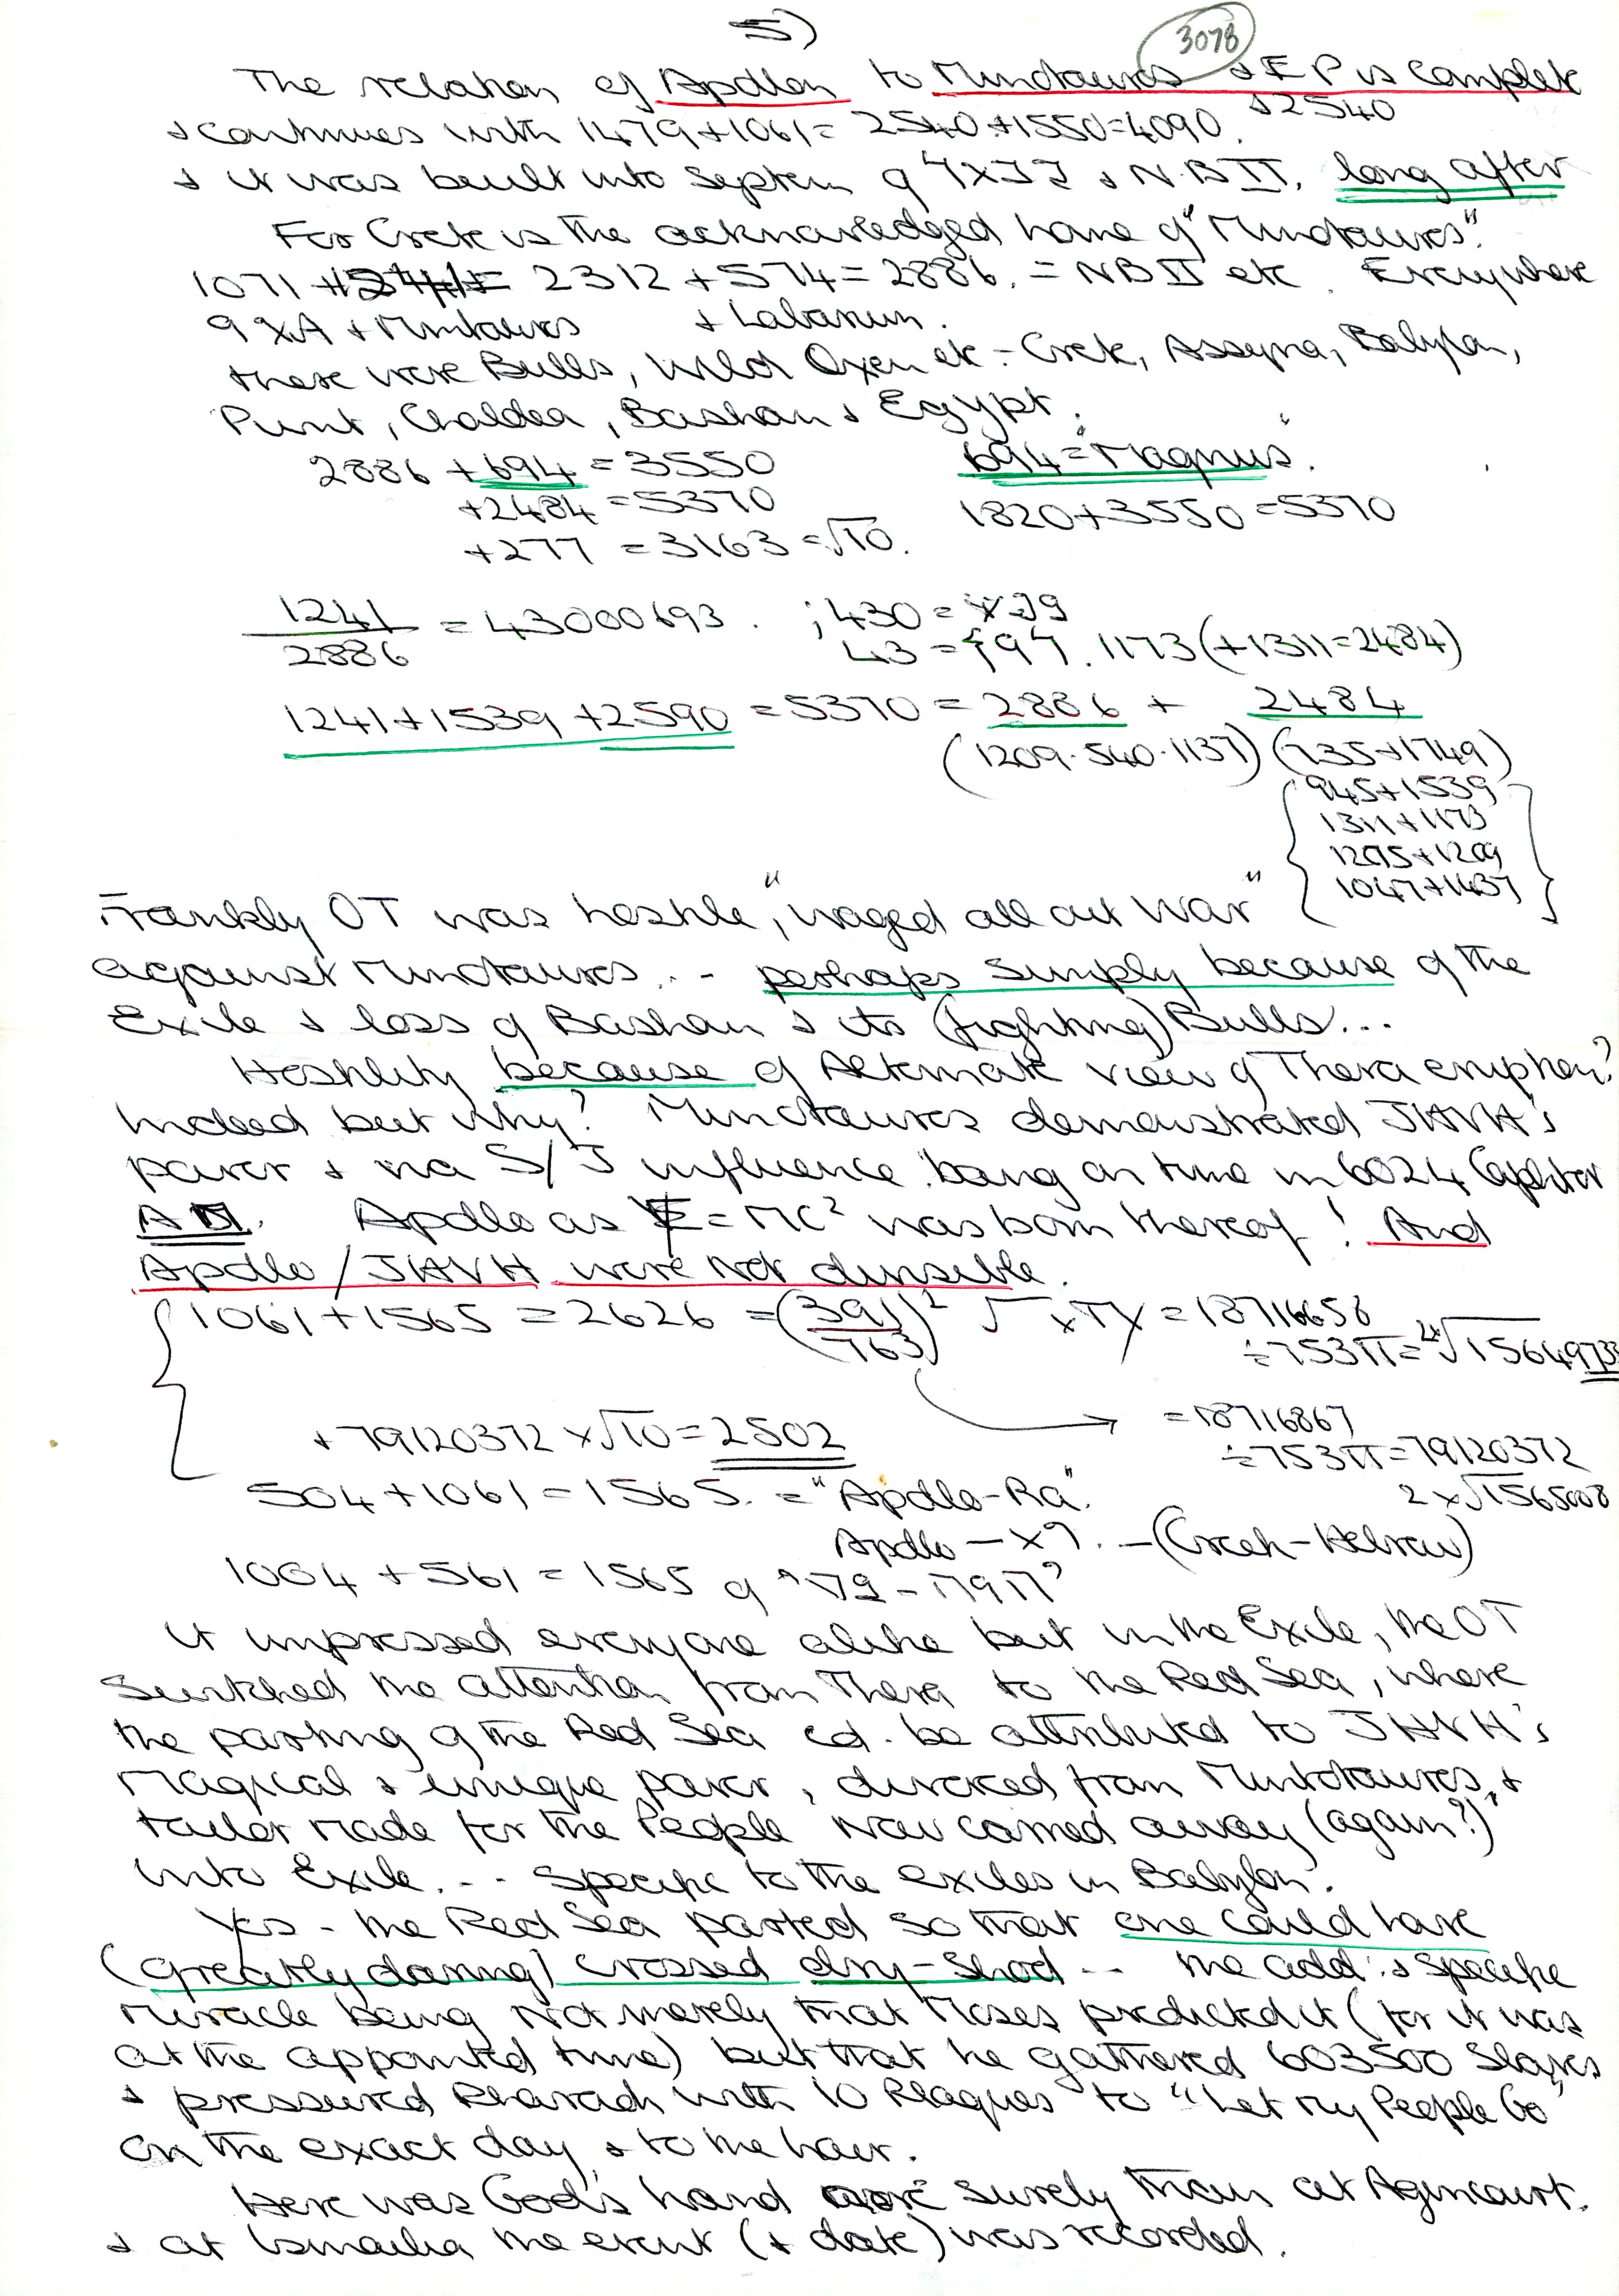 5)
3078
The relation of Apollon to Minotauros & EP is complete
& continues with 1479+1061= 2540+1550=4090. +2540
& it was built into System of & NBII, long after
For Crete is the acknowledged home of "Minotauros".
1071 +1241= 2312+574=2886. = NBII etc. Everywhere
+ Minotauros + Labarum.
there were Bulls, Wild Oxen etc - Crete, Assyria, Babylon,
Punt, Chaldea, Bashan & Egypt.
2886 +694 =3550 694="Magnus".
+2484 =5370 1820+3550=5370
+277 = 3163 =√10.
1241/2886 = 43000693. ; 430 =
43 = . 1173(+1311=2484)
1241+1539+2590 =5370 = 2886 + 2484
(1209.540.1137) (735+1749)
945+1539
1311+1173
1275+1209
1047+1437
Frankly OT was hostile, "waged all out War"
against Minotauros... perhaps simply because of the
Exile & loss of Bashan & its (fighting) Bulls...
Hostility because of Alternate view of Thera eruption?
Indeed but why? Minotauros demonstrated JHVH's
power & via S/J influence bang on time in 6024
Apollo as E=MC² was born thereof! And
Apollo/JHVH were not divisible.
1061+1565 =2626 =(391/763)² √ = 18716658
÷753π=
=18716867
+79120372 x√10=2502
÷753π=79120372
504+1061=1565. ="Apollo-Ra".
2x√1565008
Apollo — (Greek-Hebrew)
1004 +561=1565 of
It impressed everyone alike but in the Exile, the OT
switched the attention from Thera to the Red Sea, where
the parting of the Red Sea cd. be attributed to JHVH's
Magical & unique power, divorced from Minotauros, &
tailor made for the People Now carried away (again?)
into Exile... Specific to the exiles in Babylon.
Yes - the Red Sea parted so that one could have
(greatly daring) crossed dry-shod... the add. & specific
Miracle being Not merely that Moses predicted it (for it was
at the appointed time) but that he gathered 603500 Slaves
& pressured Pharaoh with 10 Plagues to "Let My People Go"
on the exact day, & to the hour.
Here was God's hand more surely than at Agincourt.
& at Ismailia the event (& date) was recorded.